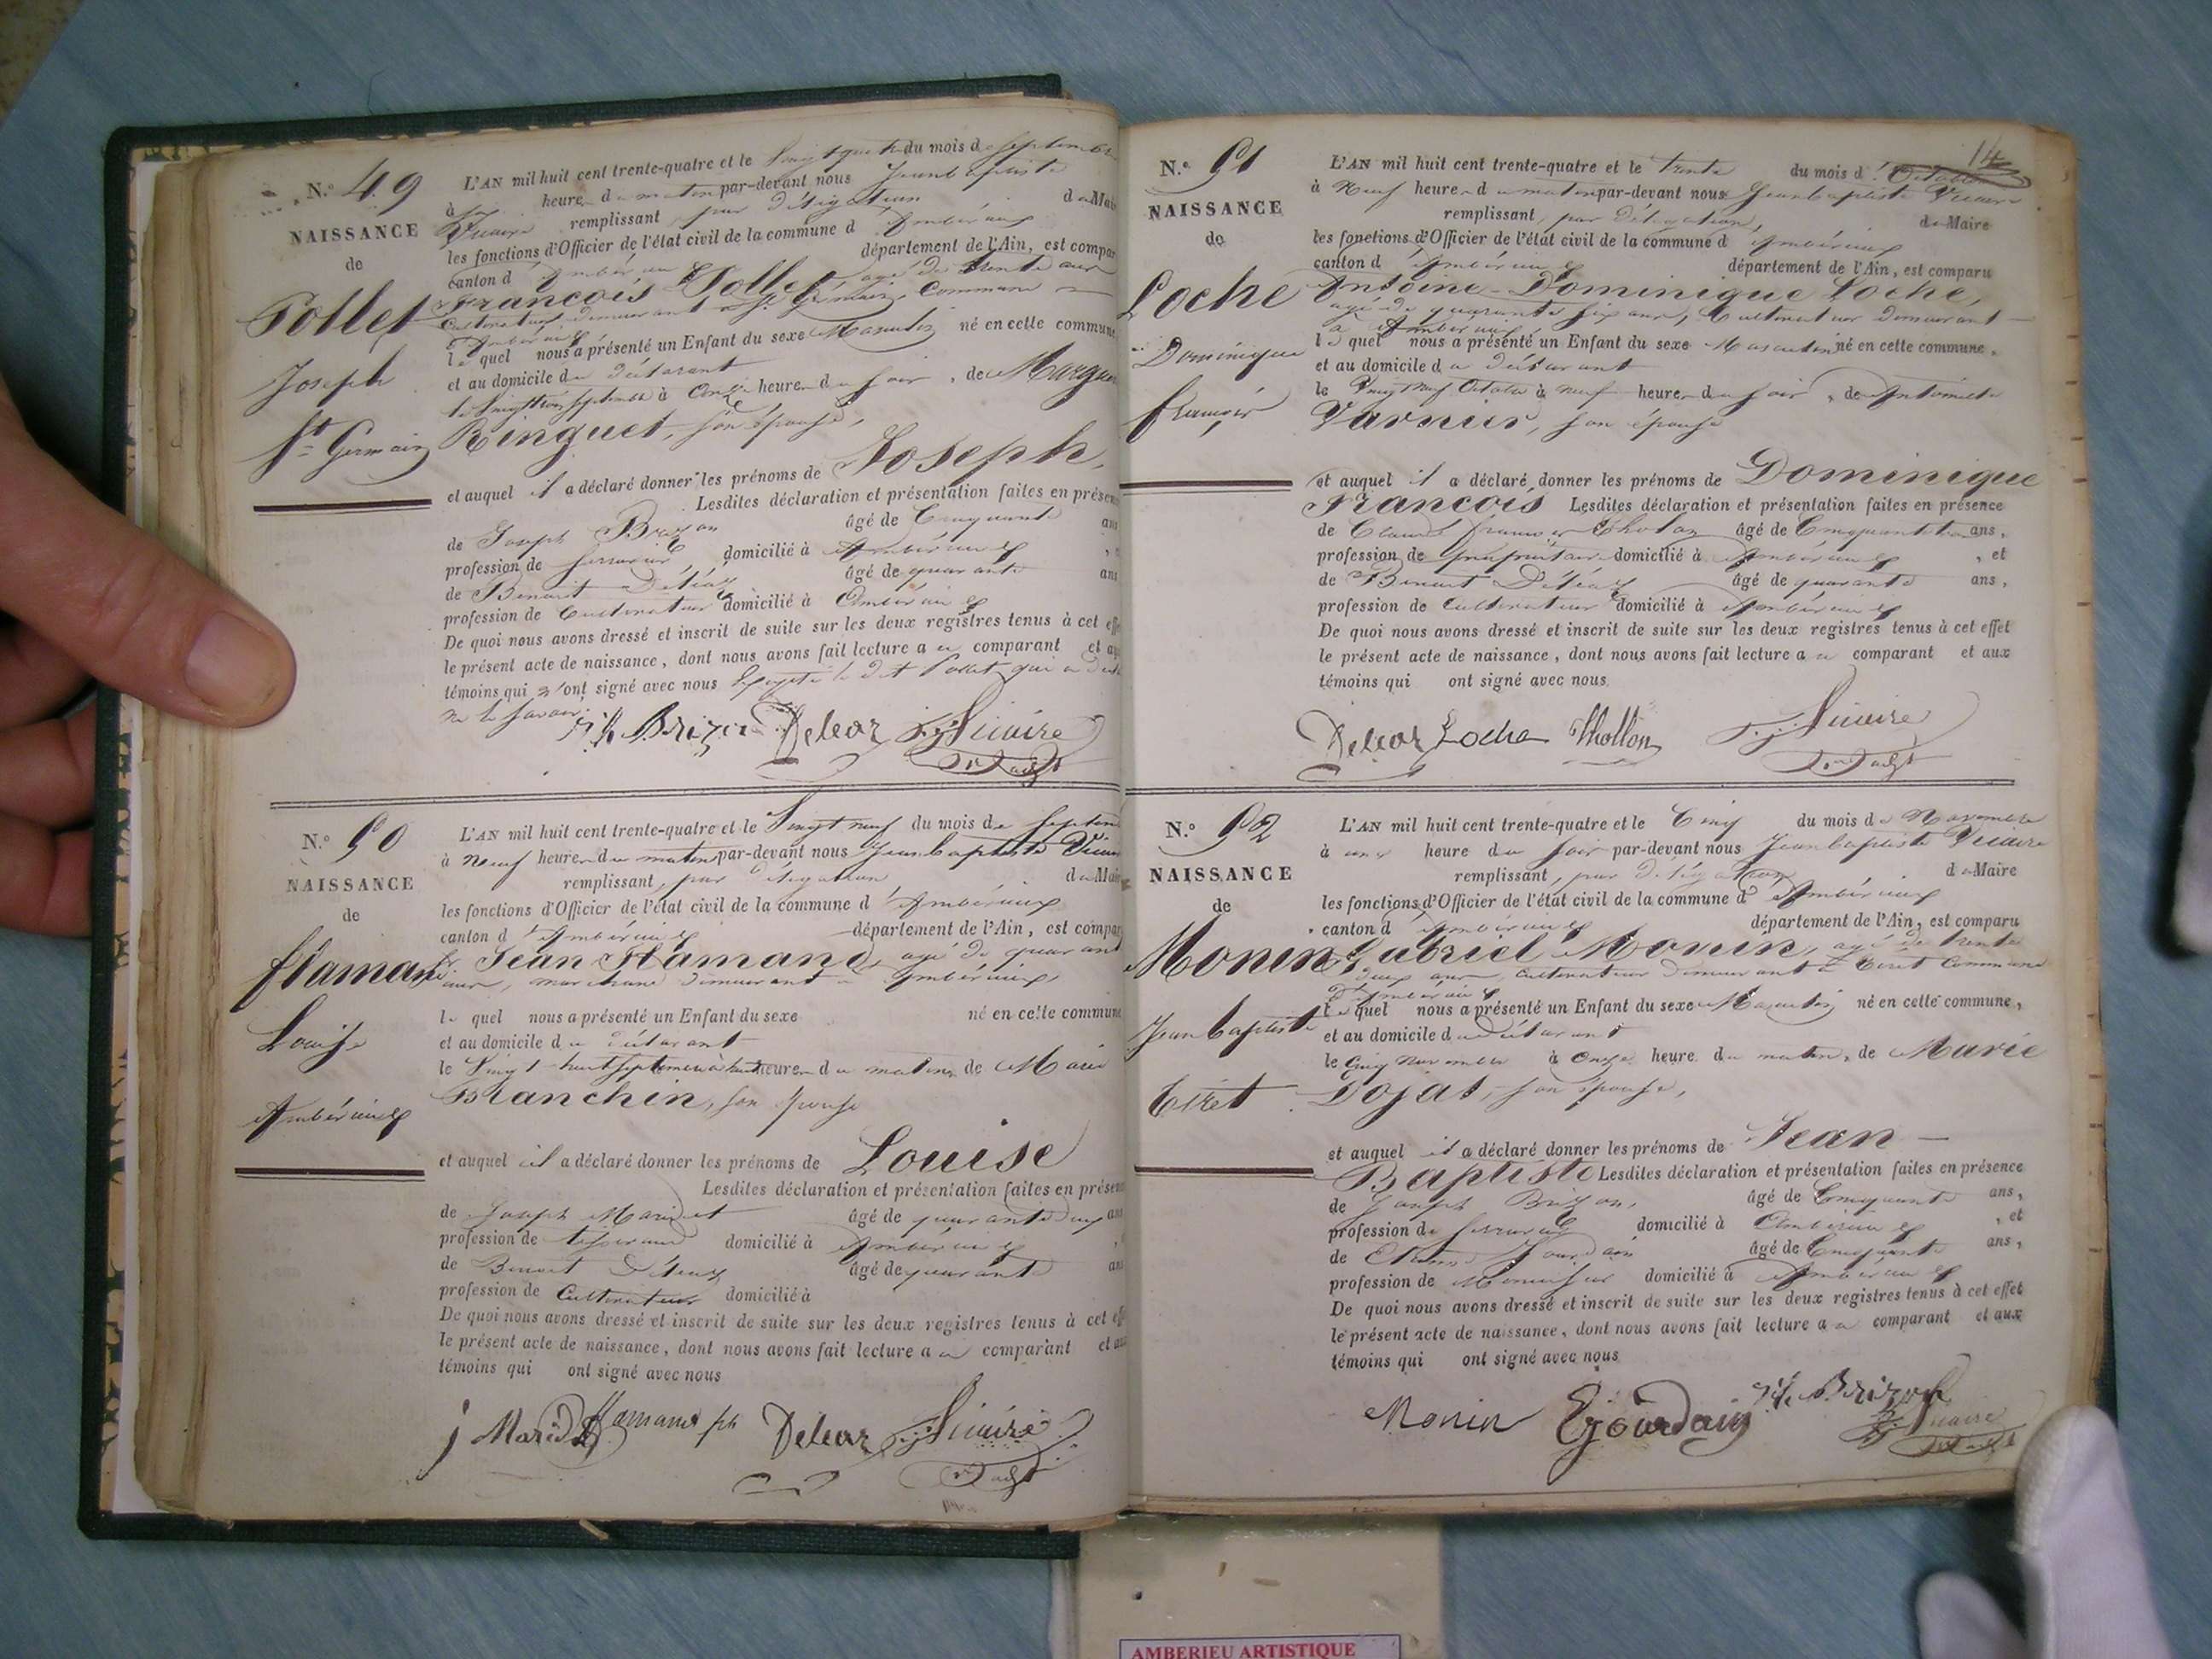 N.º 49
NAISSANCE
de
Pollet
Joseph
St Germain
L'AN mil huit cent trente-quatre et le du mois de Septembre
à heure du matin par-devant nous Jean baptiste
Vicaire remplissant, par délégation du Mai
les fonctions d'Officier de l'état civil de la commune d'Ambérieux
canton d'Ambérieux département de l'Ain, est compar
François Pollet agé de trente ans
Cultivateur, demeurant à St Germain, Commune
d'Ambérieux
le quel nous a présenté un Enfant du sexe Masculin né en cette commune
et au domicile du déclarant
le Vingt trois Septembre à Onze heure du soir, de Margue
Ringuet, son épouse,
et auquel il a déclaré donner les prénoms de Joseph,
Lesdites déclaration et présentation faites en présen
de Joseph Brizon âgé de Cinquante ans
profession de Serrurier domicilié à Ambérieux
de Benoit Déléaz âgé de quarante ans
profession de Cultivateur domicilié à Ambérieux
De quoi nous avons dressé et inscrit de suite sur les deux registres tenus à cet eff
le présent acte de naissance, dont nous avons fait lecture au comparant et au
témoins qui ont signé avec nous Excepté le dit Pollet qui a décl
ne le savoir.
Brizon Deleaz Vicaire
N.º 50
NAISSANCE
de
flamand
Louise
Ambérieux
L'AN mil huit cent trente-quatre et le Vingt neuf du mois de Septem
à Neuf heure du matin par-devant nous Jean baptiste Vicair
remplissant, par délégation du Mair
les fonctions d'Officier de l'état civil de la commune d'Ambérieux
canton d'Ambérieux département de l'Ain, est compar
Jean Flamand, agé de quarant
ans, marchand demeurant à Ambérieux,
le quel nous a présenté un Enfant du sexe né en cette commune
et au domicile du déclarant
le Vingt-huit Septembre à huit heure du matin, de Marie
Blanchin, son épouse
et auquel il a déclaré donner les prénoms de Louise
Lesdites déclaration et présentation faites en présen
de Joseph Maridet âgé de quarante deux ans
profession de tisserand domicilié à Ambérieux
de Benoit Déléaz âgé de quarante ans
profession de Cultivateur domicilié à
De quoi nous avons dressé et inscrit de suite sur les deux registres tenus à cet eff
le présent acte de naissance, dont nous avons fait lecture au comparant et au
témoins qui ont signé avec nous
j Maridet flamand Deleaz Vicaire
14
N.º 51
NAISSANCE
de
Loche
Dominique
françois
L'AN mil huit cent trente-quatre et le trente du mois d'Octobre
à Neuf heure du matin par-devant nous Jean baptiste Vicaire
remplissant, par délégation, du Maire
les fonctions d'Officier de l'état civil de la commune d'Ambérieux
canton d'Ambérieux département de l'Ain, est comparu
Antoine-Dominique Loche,
agé de quarante six ans, Cultivateur demeurant
à Ambérieux
le quel nous a présenté un Enfant du sexe Masculin né en cette commune,
et au domicile du déclarant
le Vingt neuf Octobre à neuf heure du soir, de Antoinette
Varnier, son épouse
et auquel il a déclaré donner les prénoms de Dominique
François Lesdites déclaration et présentation faites en présence
de Claude françois Thollon âgé de Cinquante ans,
profession de propriétaire domicilié à Ambérieux, et
de Benoit Déléaz âgé de quarante ans,
profession de Cultivateur domicilié à Ambérieux
De quoi nous avons dressé et inscrit de suite sur les deux registres tenus à cet effet
le présent acte de naissance, dont nous avons fait lecture au comparant et aux
témoins qui ont signé avec nous
Deleaz Loche Thollon Vicaire
N.º 52
NAISSANCE
de
Monin
Jean baptiste
Tiret
L'AN mil huit cent trente-quatre et le Cinq du mois de Novembre
à une heure du soir par-devant nous Jean baptiste Vicaire
remplissant, par délégation du Maire
les fonctions d'Officier de l'état civil de la commune d'Ambérieux
canton d'Ambérieux département de l'Ain, est comparu
Gabriel Monin, agé de trente
deux ans, Cultivateur demeurant à Tiret Commune
d'Ambérieux
le quel nous a présenté un Enfant du sexe Masculin né en cette commune,
et au domicile du déclarant
le Cinq novembre à Onze heure du matin, de Marie
Dojat, son épouse,
et auquel il a déclaré donner les prénoms de Jean-
Baptiste Lesdites déclaration et présentation faites en présence
de Joseph Brizon, âgé de Cinquante ans,
profession de Serrurier domicilié à Ambérieux, et
de Etienne Jourdain âgé de Cinquante ans,
profession de Menuisier domicilié à Ambérieux
De quoi nous avons dressé et inscrit de suite sur les deux registres tenus à cet effet
le présent acte de naissance, dont nous avons fait lecture au comparant et aux
témoins qui ont signé avec nous
Monin Ejourdain Brizon Vicaire
AMBERIEU ARTISTIQUE